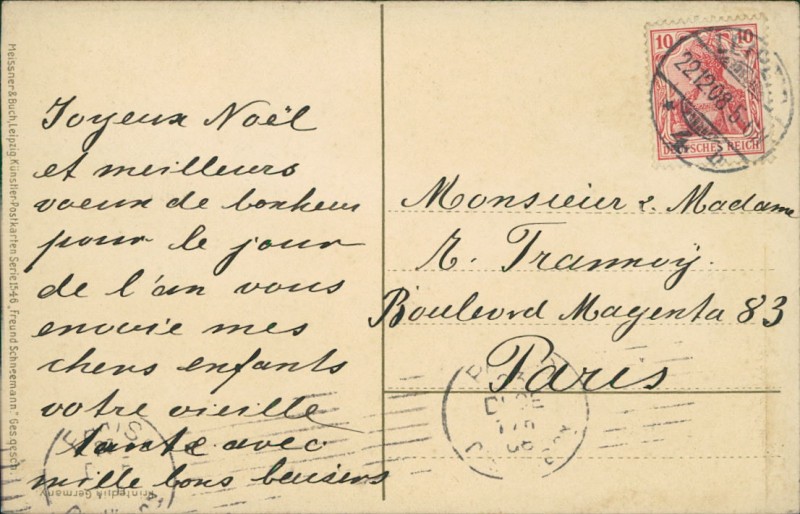 Joyeux Noël
et meilleurs
voeux de bonheur
pour le jour
de l'an vous
envoie mes
chers enfants
votre vieille
tante avec
mille bons baisers
Monsieur & Madame
E. Trannoÿ.
Boulevord Magenta 83
Paris
10 10
DEUTSCHES REICH
LEIPZIG
22.12.08.5-
* 4 b
Meissner & Buch, Leipzig, Künstler-Postkarten Serie 1546 "Freund Schneemann" Ges. gesch.
Printed in Germany
PARIS